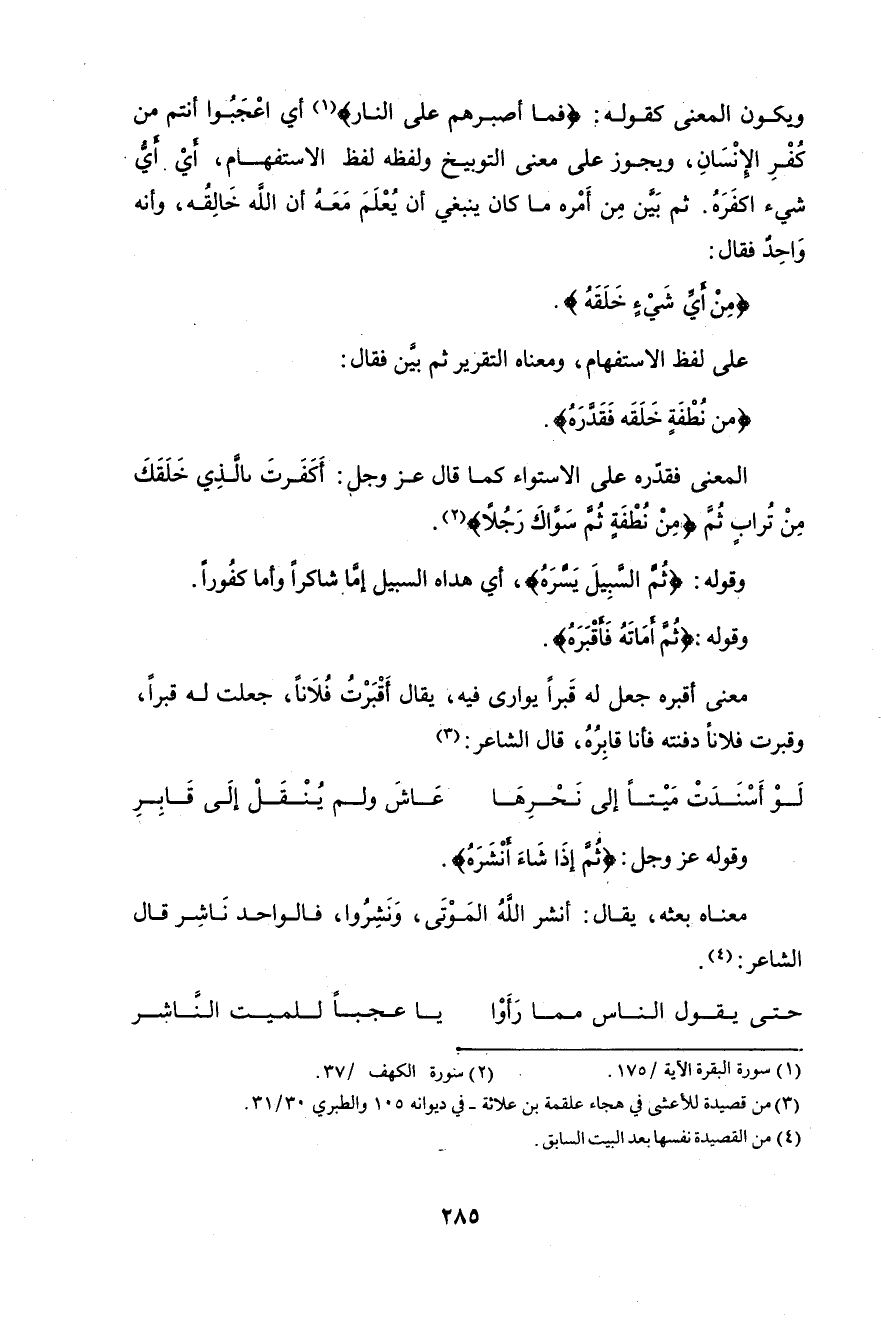 ويكون المعنى كقوله: ﴿فما أصبرهم على النار﴾(١) أي اعْجَبُوا أنتم من
كُفْرِ الإِنْسَانِ، ويجوز على معنى التوبيخ ولفظه لفظ الاستفهام، أَيْ أَيُّ
شيء اكفَرَهُ. ثم بَيَّن مِن أَمْره ما كان ينبغي أن يُعْلَمَ مَعَهُ أن الله خَالِقُه، وأنه
وَاحِدٌ فقال:
﴿مِنْ أَيِّ شَيْءٍ خَلَقَهُ﴾.
على لفظ الاستفهام، ومعناه التقرير ثم بيَّن فقال:
﴿من نُطْفَةٍ خَلَقَه فَقَدَّرَهُ﴾.
المعنى فقدّره على الاستواء كما قال عز وجل: أَكَفَرتَ بالَّذِي خَلَقَكَ
مِنْ تُرابٍ ثُمَّ ﴿مِنْ نُطْفَةٍ ثُمَّ سَوَّاكَ رَجُلًا﴾(٢).
وقوله: ﴿ثُمَّ السَّبِيلَ يَسَّرَهُ﴾، أي هداه السبيل إمَّا شاكراً وأما كفُوراً.
وقوله: ﴿ثُمَّ أَمَاتَهُ فَأَقْبَرَهُ﴾.
معنى أقبره جعل له قَبراً يوارى فيه، يقال أَقْبَرْتُ فُلَاناً، جعلت له قبراً،
وقبرت فلاناً دفنته فأنا قابِرُهُ، قال الشاعر:(٣)
لَوْ أَسْنَدَتْ مَيْتاً إلى نَحْرِهَا عَاشَ ولم يُنْقَلْ إلَى قَابِرِ
وقوله عز وجل: ﴿ثُمَّ إذَا شَاءَ أَنْشَرَهُ﴾.
معناه بعثه، يقال: أنشر اللَّهُ المَوْتَى، وَنَشِرُوا، فالواحد نَاشِر قال
الشاعر:(٤).
حتى يقول الناس مما رَأَوْا يا عجباً للميت النَّاشِرِ
(١) سورة البقرة الآية /١٧٥. (٢) سورة الكهف /٣٧.
(٣) من قصيدة للأعشى في هجاء علقمة بن علاثة - في ديوانه ١٠٥ والطبري ٣١/٣٠.
(٤) من القصيدة نفسها بعد البيت السابق.
٢٨٥